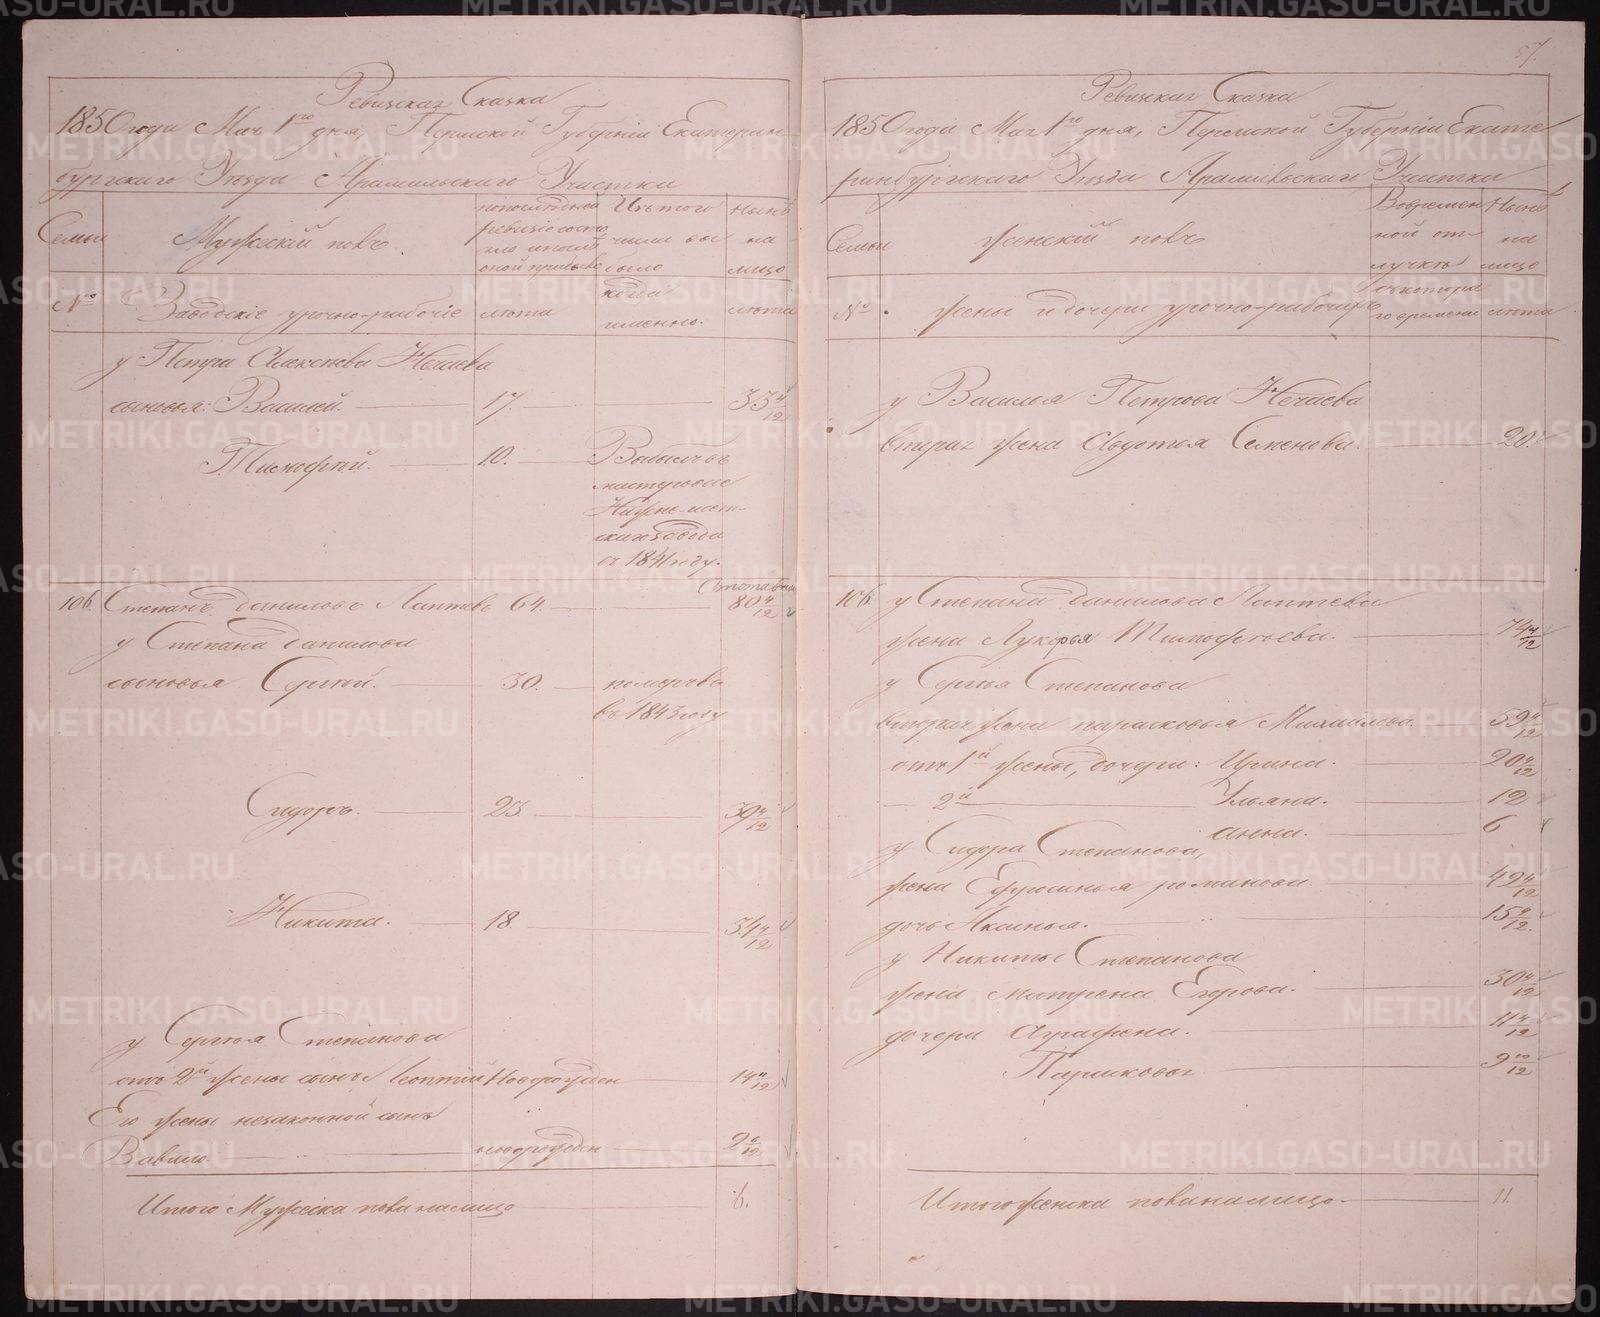 Ревизская Сказка
1850 года Мая 1го дня, Пермской Губернiи Екатерин
бургскаго Уезда Арамильскаго Участка
Семьи
Мужескiй полъ.
попоследней
ревизiи состо
яло и после
оной прибыло
Изъ того
числа вы
было
Ныне
на
лицо
№
Заводскiе урочно-рабочiе
лета
когда
именно.
лета
у Петра Алексеева Нечаева
сыновья: Василей. 17. 35 4/12
Тимофей. 10. Выбылъ въ
мастеровые
Нижне-исет-
скаго завода
въ 1841 году.
106. Степанъ Даниловъ Лаптевъ 64. 80 4/12
у Степана Данилова
сыновья Сергей. 30. померъ
въ 1843 году
Сидоръ. 23. 39 4/12
Никита. 18. 34 4/12
у Сергея Степанова
отъ 2й жены сынъ Леонтiй Новорожден 14 11/12
Его жены незаконной сынъ
Вавило. новорожден 2 6/12
Итого Мужеска пола налицо 6.
57.
Ревизская Сказка
1850 года Мая 1го дня, Пермской Губернiи Екате
ринбургскаго Уезда Арамильскаго Участка
Семьи
женскiй полъ
Во времен
ной от
лучке
Ныне
на
лицо
№
жены и дочери урочно-рабочихъ
съ котора
го времени
лета
у Василья Петрова Нечаева
вторая жена Авдотья Семенова. 20.
106. у Степана Данилова Лаптева
жена Лукерья Тимофеева. 74 4/12
у Сергея Степанова
вторая жена парасковья Михайлова. 59 4/12
отъ 1й жены, дочери: Ирина. 20 4/12
2й Ульяна. 12
анна. 6
у Сидора Степанова,
жена Ефросинья романова. 49 4/12
дочь Аксинья. 15 4/12
у Никиты Степанова
жена Матрена Егорова. 30 4/12
дочери Аграфена. 11 4/12
Парасковья 9 10/12
Итого женска пола налицо. 11.
METRIKI.GASO-URAL.RU